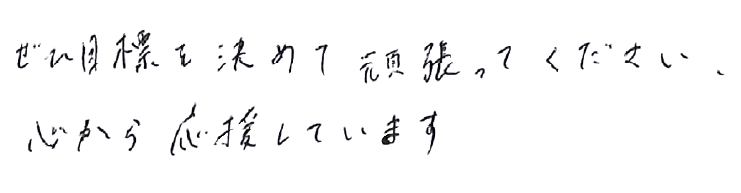 ぜひ目標を決めて頑張ってください、
心から応援しています